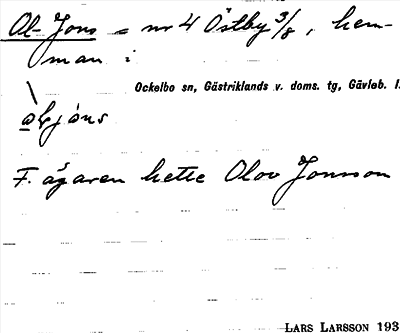 Ol-Jons = nr 4 Östby 3/8, hem-
man i
Ockelbo sn, Gästriklands v. doms. tg, Gävleb. l.
F. ägaren hette Olov Jonsson
LARS LARSSON 193